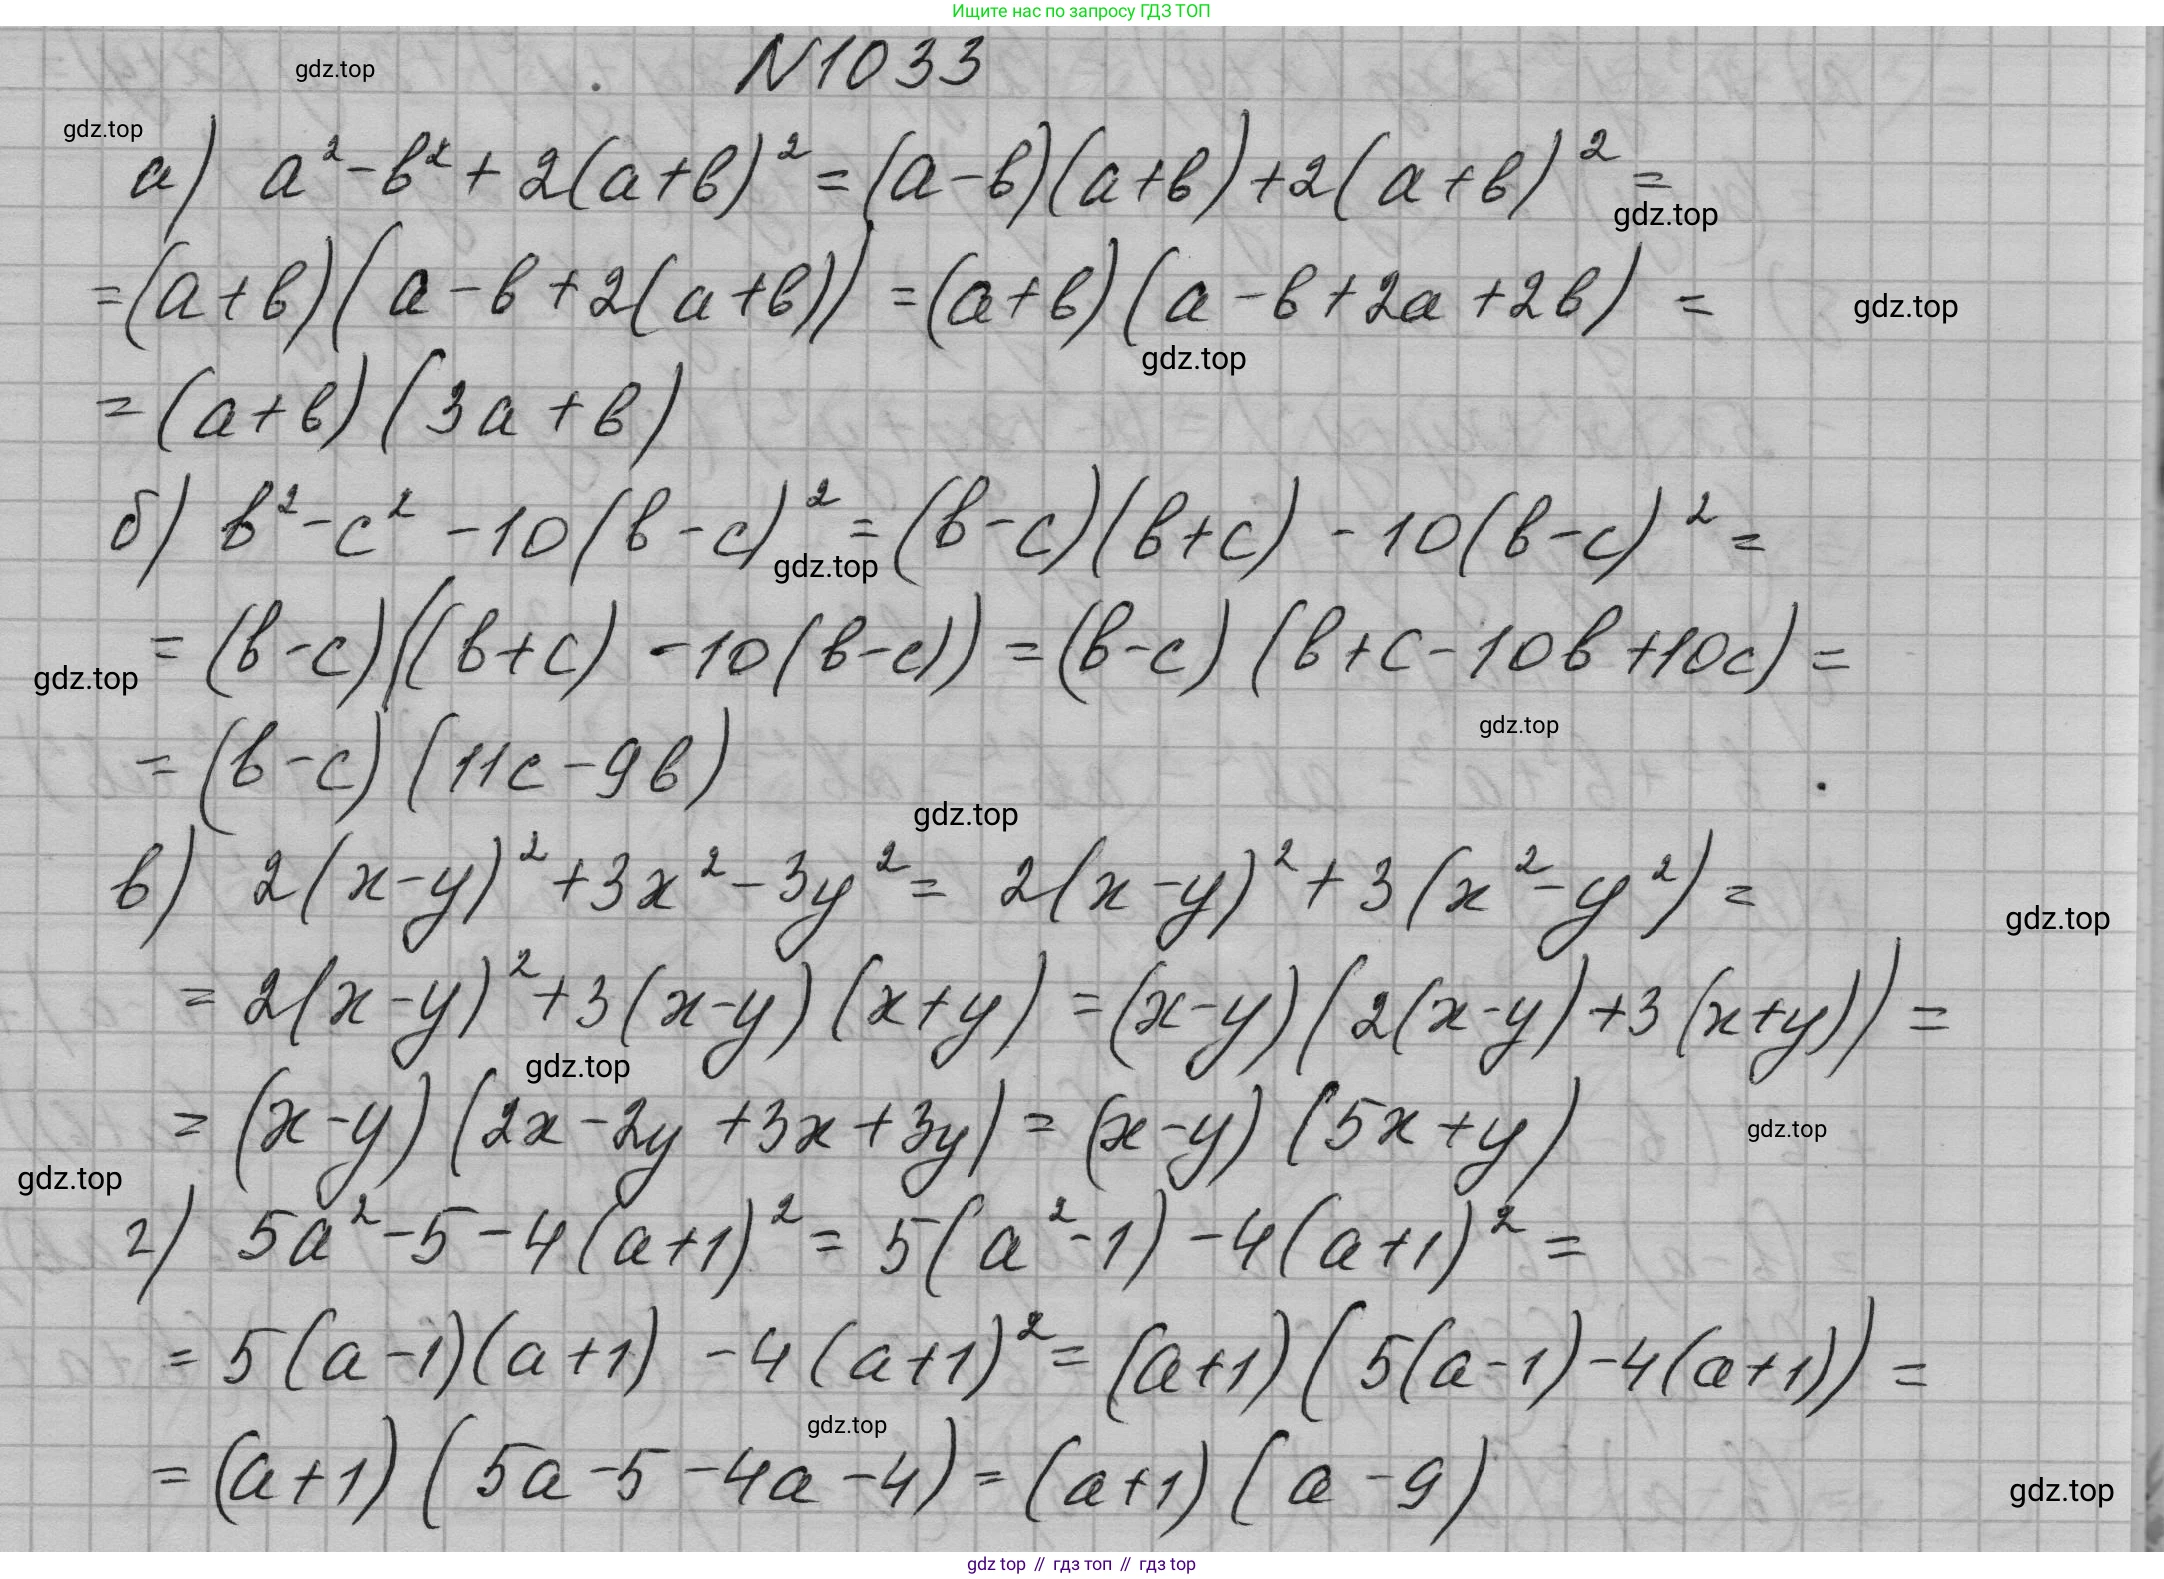 Ищите нас по запросу ГДЗ ТОП
N1033
gdz.top
gdz.top
а) a² - b² + 2(a+b)² = (a-b)(a+b) + 2(a+b)² =
gdz.top
= (a+b)(a-b+2(a+b)) = (a+b)(a-b+2a+2b) =
gdz.top
gdz.top
= (a+b)(3a+b)
б) b² - c² - 10(b-c)² = (b-c)(b+c) - 10(b-c)² =
gdz.top
= (b-c)((b+c) - 10(b-c)) = (b-c)(b+c-10b+10c) =
gdz.top
gdz.top
= (b-c)(11c-9b)
gdz.top
в) 2(x-y)² + 3x² - 3y² = 2(x-y)² + 3(x²-y²) =
gdz.top
= 2(x-y)² + 3(x-y)(x+y) = (x-y)(2(x-y)+3(x+y)) =
gdz.top
= (x-y)(2x-2y+3x+3y) = (x-y)(5x+y)
gdz.top
gdz.top
г) 5a² - 5 - 4(a+1)² = 5(a²-1) - 4(a+1)² =
= 5(a-1)(a+1) - 4(a+1)² = (a+1)(5(a-1)-4(a+1)) =
gdz.top
= (a+1)(5a-5-4a-4) = (a+1)(a-9)
gdz.top
gdz top // гдз топ // гдз top